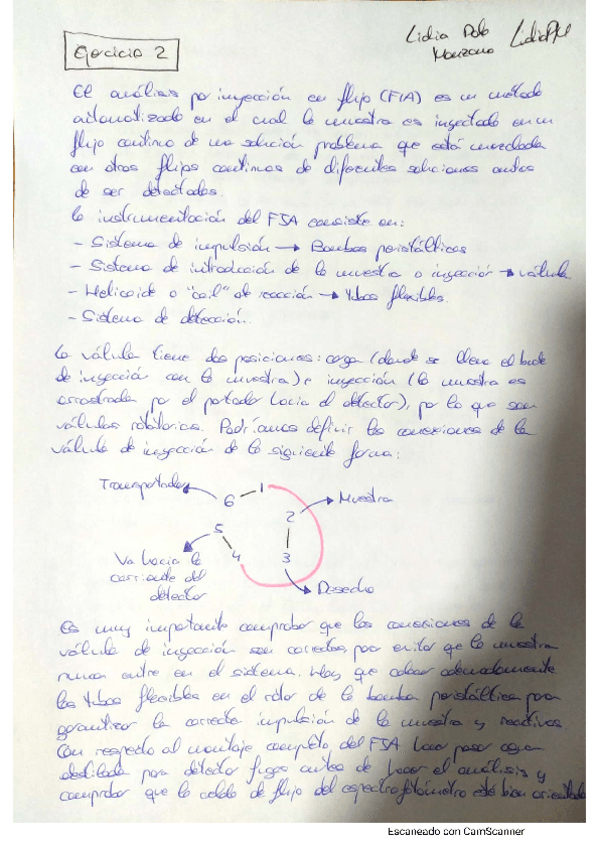 Lidia Polo
Manzano
Ejercicio 2
El análisis por inyección en flujo (FIA) es un método
automatizado en el cual la muestra es inyectada en un
flujo continuo de una solución problema que está mezclada
con otros flujos continuos de diferentes soluciones antes
de ser detectadas.
La instrumentación del FIA consiste en:
- Sistema de impulsión → Bombas peristálticas
- Sistema de introducción de la muestra o inyección → válvula
- Helicoide o "coil" de reacción → tubos flexibles.
- Sistema de detección.
La válvula tiene dos posiciones: carga (donde se llena el bucle
de inyección con la muestra) e inyección (la muestra es
arrastrada por el portador hacia el detector), por lo que son
válvulas rotatorias. Podríamos definir las conexiones de la
válvula de inyección de la siguiente forma:
Transportador
6
1
2
Muestra
5
4
3
Va hacia la
corriente del
detector
Desecho
Es muy importante comprobar que las conexiones de la
válvula de inyección son correctas, para evitar que la muestra
nunca entre en el sistema. Hay que colocar adecuadamente
los tubos flexibles en el rotor de la bomba peristáltica para
garantizar la correcta impulsión de la muestra y reactivos.
Con respecto al montaje completo del FIA hacer pasar agua
destilada para detectar fugas antes de hacer el análisis y
comprobar que la celda de flujo del espectrofotómetro está bien orientada
Escaneado con CamScanner